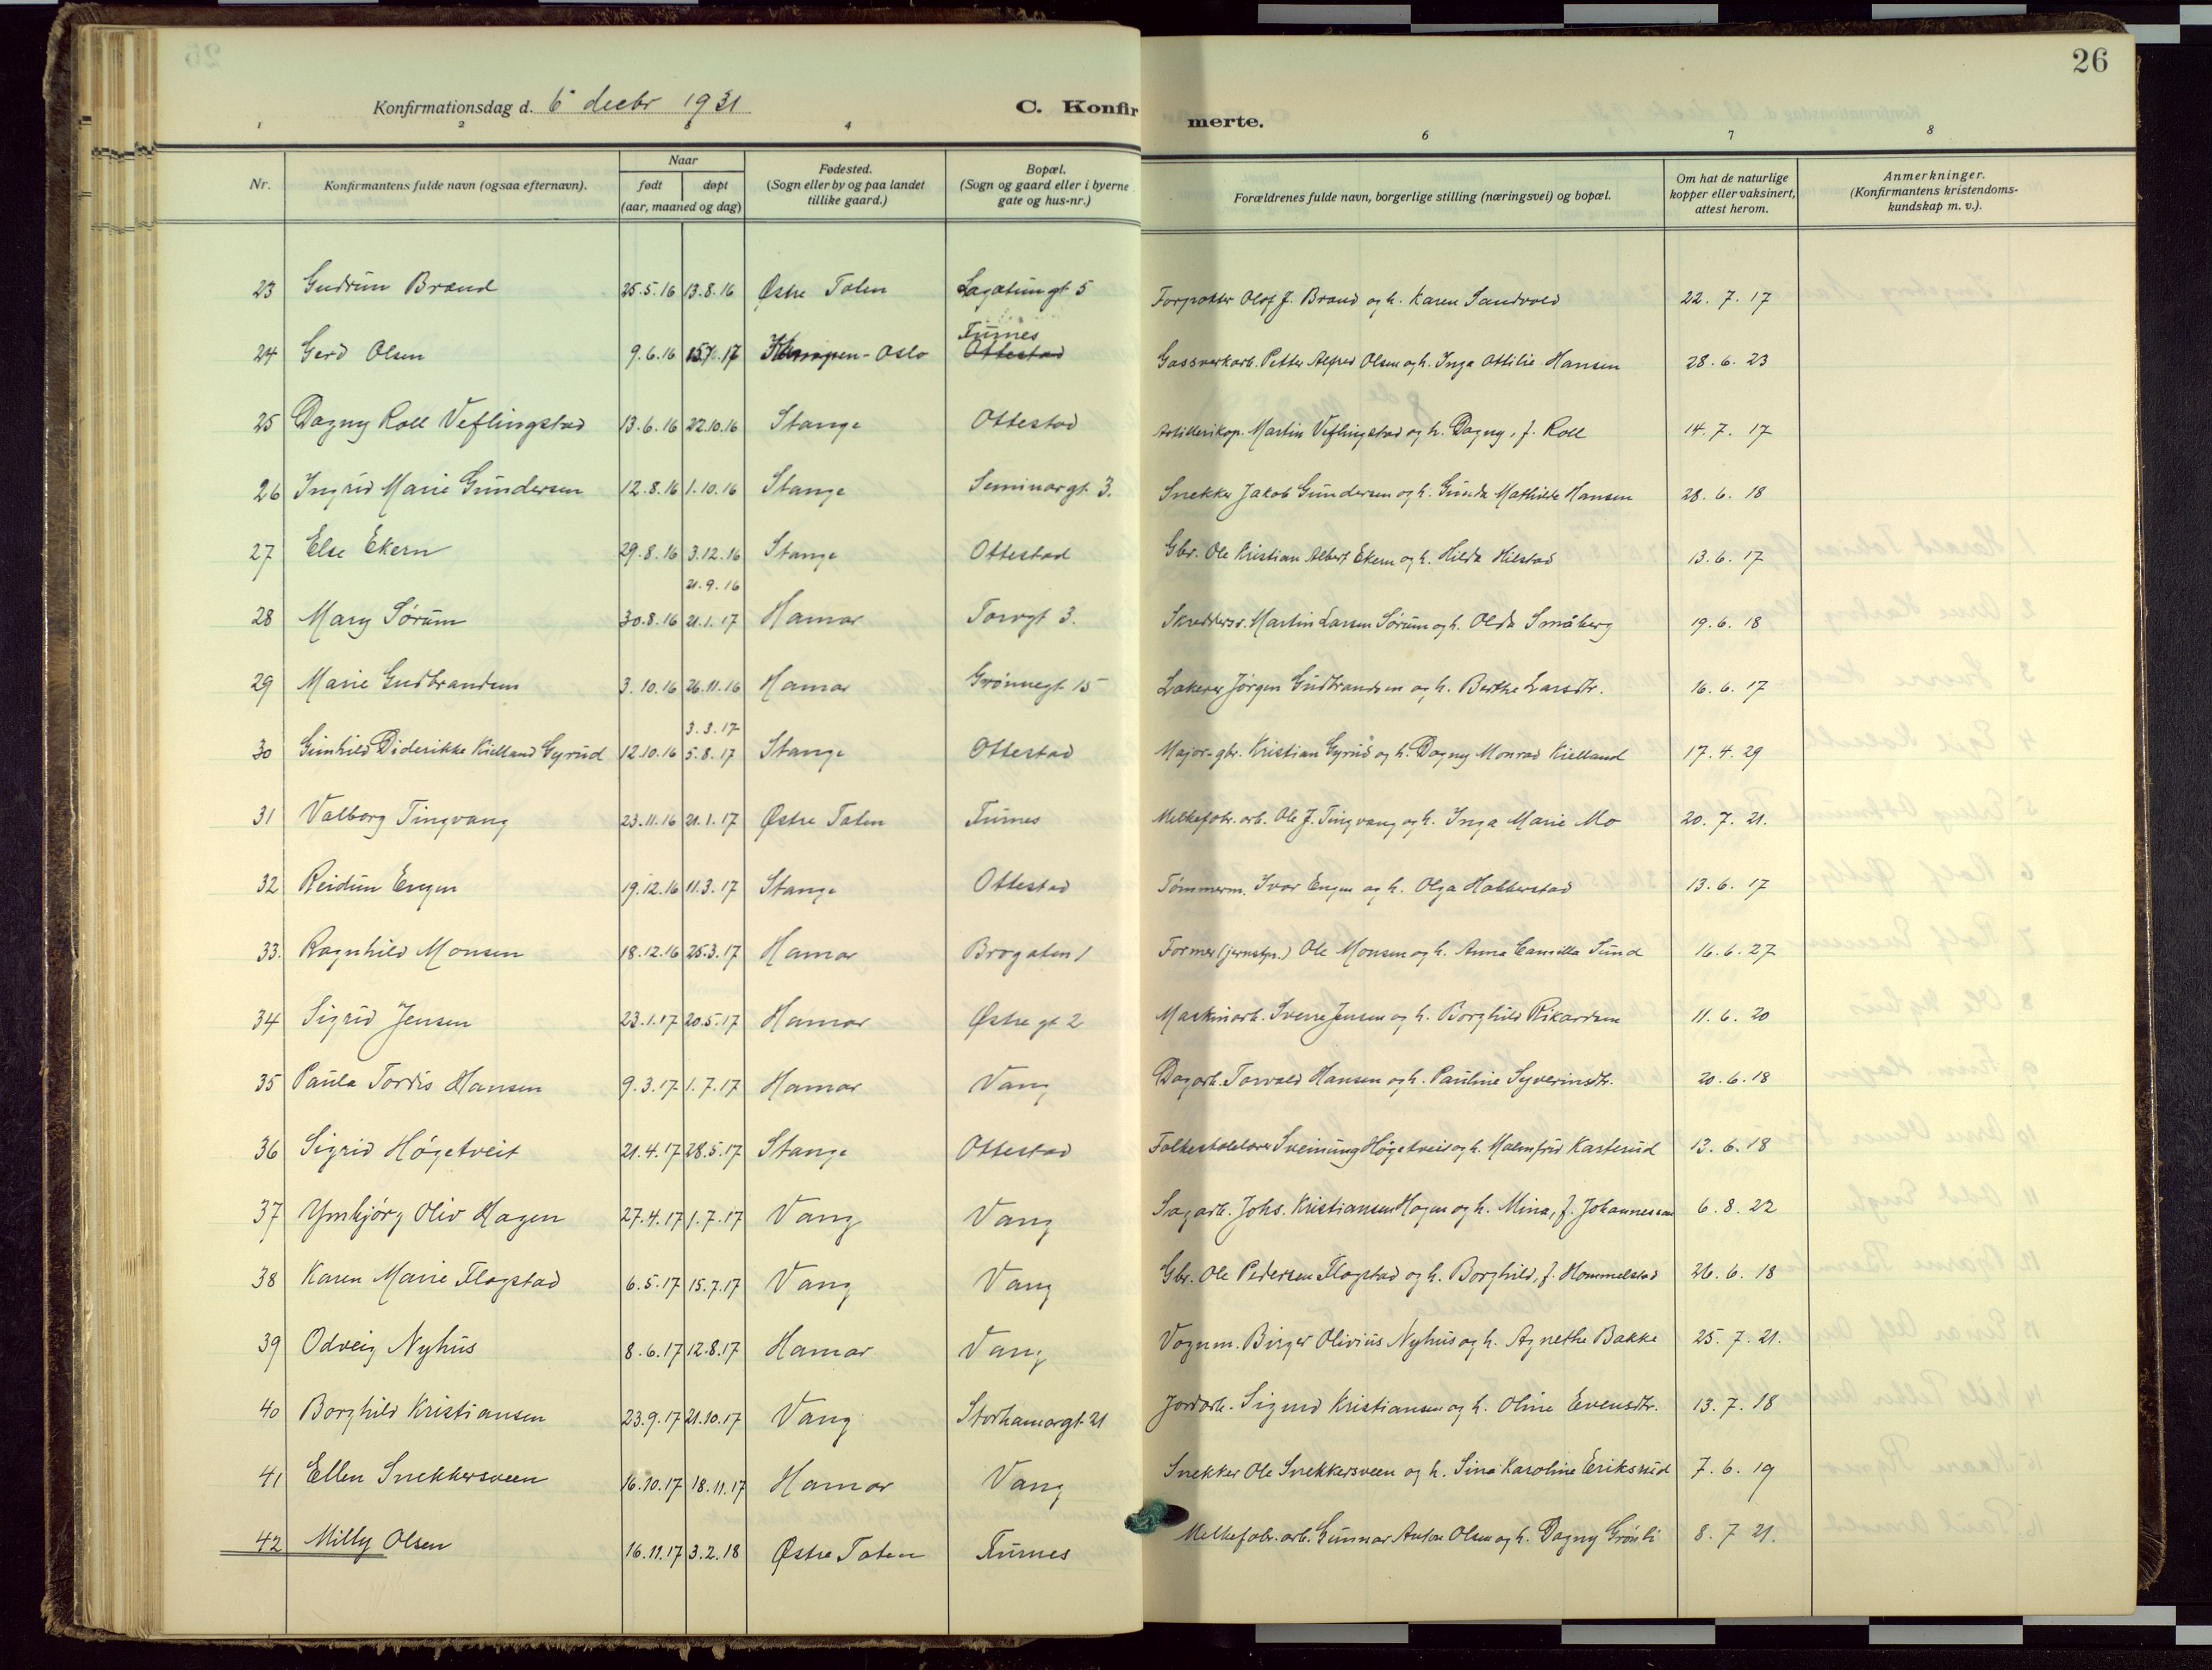 26
Konfirmationsdag d. 6 decbr 1931
C. Konfirmerte.
1 2 3 4 6 7 8
Nr. Konfirmantens fulde navn (ogsaa efternavn). Naar født døpt (aar, maaned og dag) Fødested. (Sogn eller by og paa landet tillike gaard.) Bopæl. (Sogn og gaard eller i byerne gate og hus-nr.) Forældrenes fulde navn, borgerlige stilling (næringsvei) og bopæl. Om hat de naturlige kopper eller vaksinert, attest herom. Anmerkninger. (Konfirmantens kristendoms-kundskap m. v.).
23 Gudrun Brand 25.5.16 13.8.16 Østre Toten gt 5 Olof J. Brand og h. Karen Sandvold 22. 7. 17
24 Gerd Olsen 9.6.16 15.7.17 Kampen - Oslo Furnes Ottestad Gassverkarb. Petter Alfred Olsen og h. Inga Ottilie Hansen 28. 6. 23
25 Dagny Roll Veflingstad 13.6.16 22.10.16 Stange Ottestad Artillerikap. Martin Veflingstad og h. Dagny, f. Roll 14. 7. 17
26 Ingrid Marie Gundersen 12.8.16 1.10.16 Stange Seminargt. 3. Snekker Jakob Gundersen og h. Gunda Mathilde Hansen 28. 6. 18
27 Else Ekern 29.8.16 3.12.16 Stange Ottestad Gbr. Ole Kristian Albert Ekern og h. Hilda Hilstad 13. 6. 17
21.9.16
28 Mary Sørum 30.8.16 21.1.17 Hamar Torvgt 3. Skreddersv. Martin Larsen Sørum og h. Olda Småberg 19. 6. 18
29 Marie Gudbrandsen 3.10.16 26.11.16 Hamar Grønnegt 15 Lakerer Jørgen Gudbrandsen og h. Berthe Larsdtr. 16. 6. 17
3.3.17
30 Gunhild Diderikke Kielland Gyrud 12.10.16 5.8.17 Stange Ottestad Major - gbr. Kristian Gyrud og h. Dagny Monrad Kielland 17. 4. 29
31 Valborg Tingvang 23.11.16 21.1.17 Østre Toten Furnes Melkefabr. arb. Ole J. Tingvang og h. Inga Marie Mo 20. 7. 21.
32 Reidun Engen 19.12.16 11.3.17 Stange Ottestad Tømmerm. Ivar Engen og h. Olga Habberstad 13. 6. 17
33. Ragnhild Monsen 18.12.16 25.3.17 Hamar Brogaten 1 Former (jernstøp.) Ole Monsen og h. Anna Camilla Sund 16. 6. 27
34 Sigrid Jensen 23.1.17 20.5.17 Hamar Østre gt 2 Maskinarb. Sverre Jensen og h. Borghild Rikardsen 11. 6. 20
35 Paula Tordis Hansen 9.3.17 1.7.17 Hamar Vang Dagarb. Torvald Hansen og h. Pauline Syverinsdtr. 20. 6. 18
36 Sigrid Høgetveit 21.4.17 28.5.17 Stange Ottestad Folkeskolelærer Sveinung Høgetveit og h. Malmfrid Karterud 13. 6. 18
37 Ymbjørg Oliv Hagen 27.4.17 1.7.17 Vang Vang Sagarb. Johs. Kristiansen Hagen og h. Mina, f. Johannessen 6. 8. 22
38 Karen Marie Flagstad 6.5.17 15.7.17 Vang Vang Gbr. Ole Pedersen Flagstad og h. Borghild, f. Hommelstad 26. 6. 18
39 Odveig Nyhus 8.6.17 12.8.17 Hamar Vang Vognm. Birger Olivius Nyhus og h. Agnethe Bakke 25. 7. 21.
40 Borghild Kristiansen 23.9.17 21.10.17 Vang Storhamargt. 21 Jordarb. Sigurd Kristiansen og h. Oline Evensdtr. 13. 7. 18
41 Ellen Snekkersveen 16.10.17 18.11.17 Hamar Vang Snekker Ole Snekkersveen og h. Sina Karoline Eriksrud 7. 6. 19
42 Milly Olsen 16.11.17 3.2.18 Østre Toten Furnes Melkefabr. arb. Gunnar Anton Olsen og h. Dagny Grønli 8. 7 21.